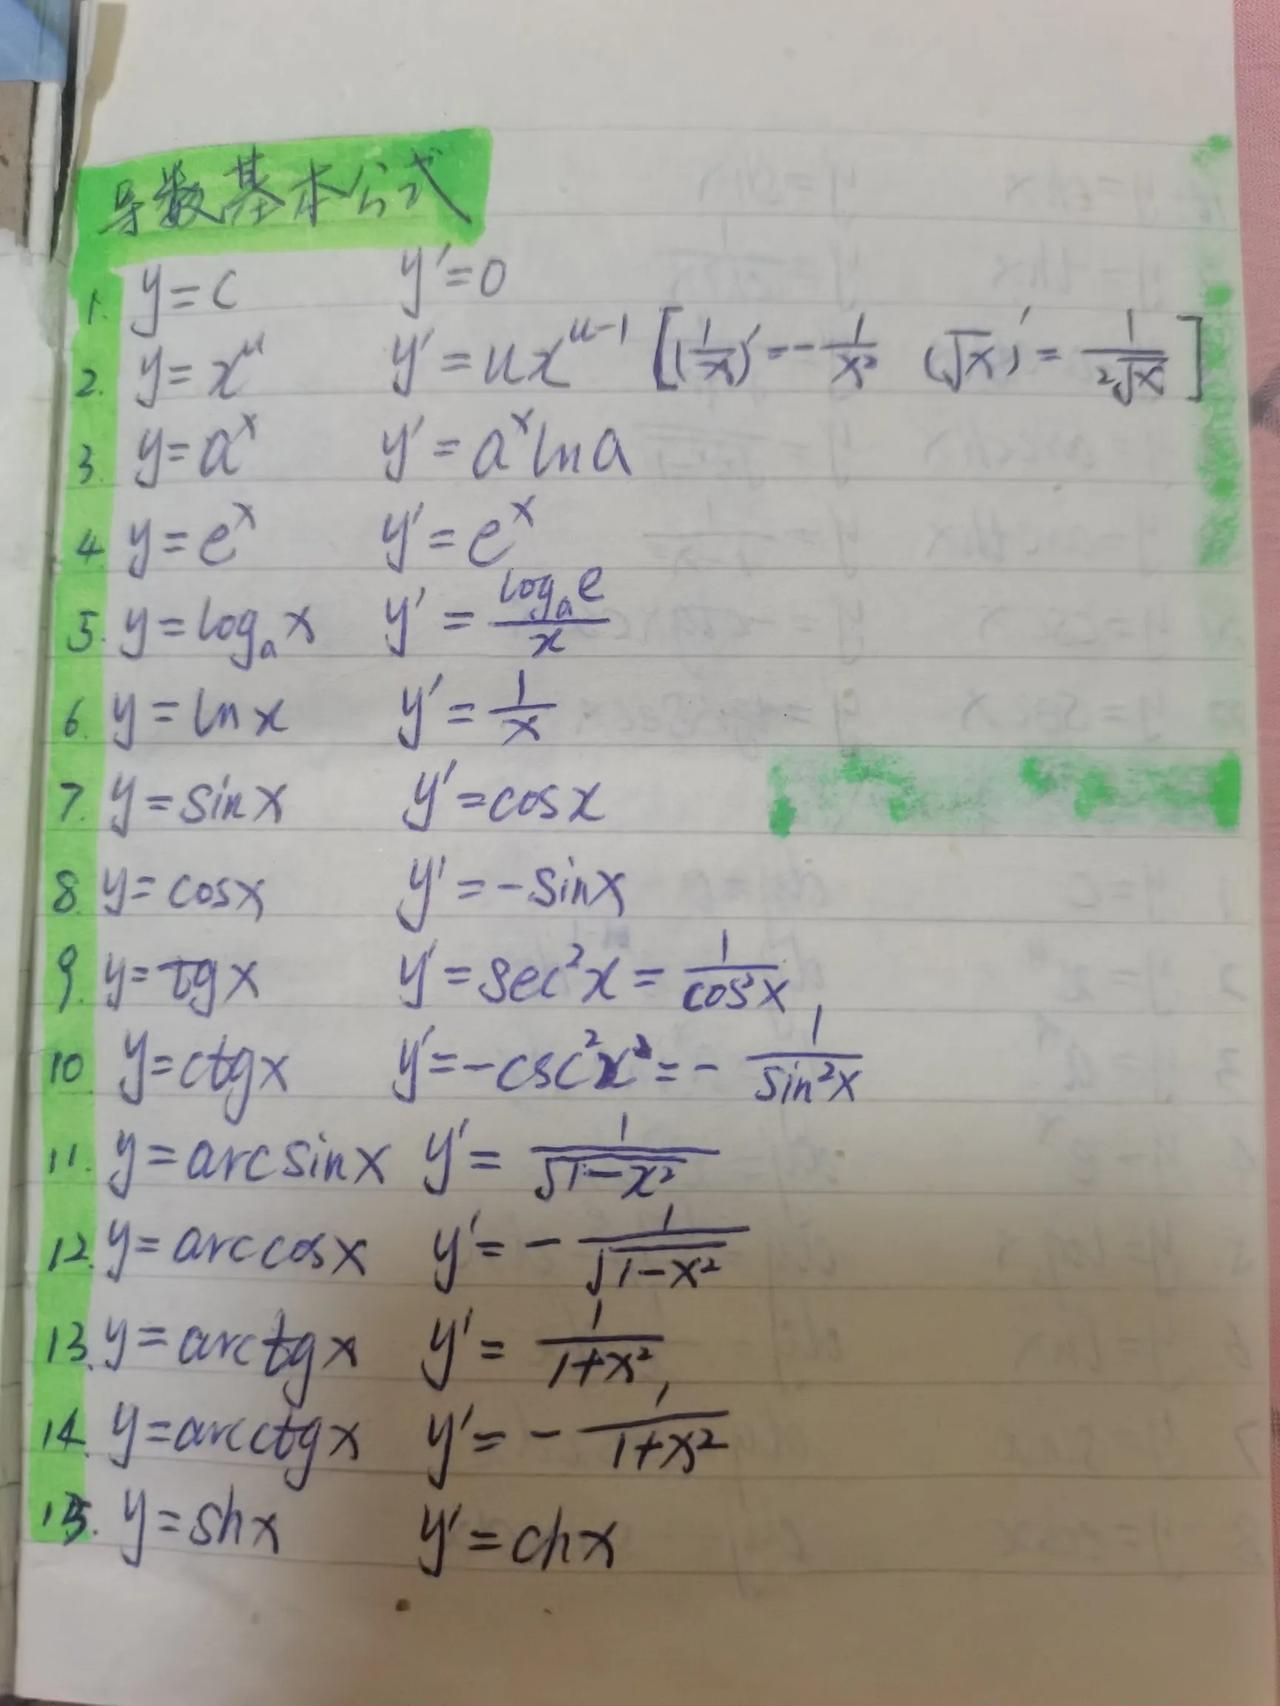 导数基本公式
1. y=c y'=0
2. y=x^u y'=ux^{u-1} [(1/x)'=-1/x² (√x)'=1/(2√x)]
3. y=a^x y'=a^x lna
4. y=e^x y'=e^x
5. y=log_a x y'=log_a e/x
6. y=lnx y'=1/x
7. y=sinx y'=cosx
8. y=cosx y'=-sinx
9. y=tgx y'=sec²x=1/cos²x
10 y=ctgx y'=-csc²x²=-1/sin²x
11. y=arcsinx y'=1/√(1-x²)
12. y=arccosx y'=-1/√(1-x²)
13. y=arctgx y'=1/(1+x²)
14. y=arcctgx y'=-1/(1+x²)
15. y=shx y'=chx